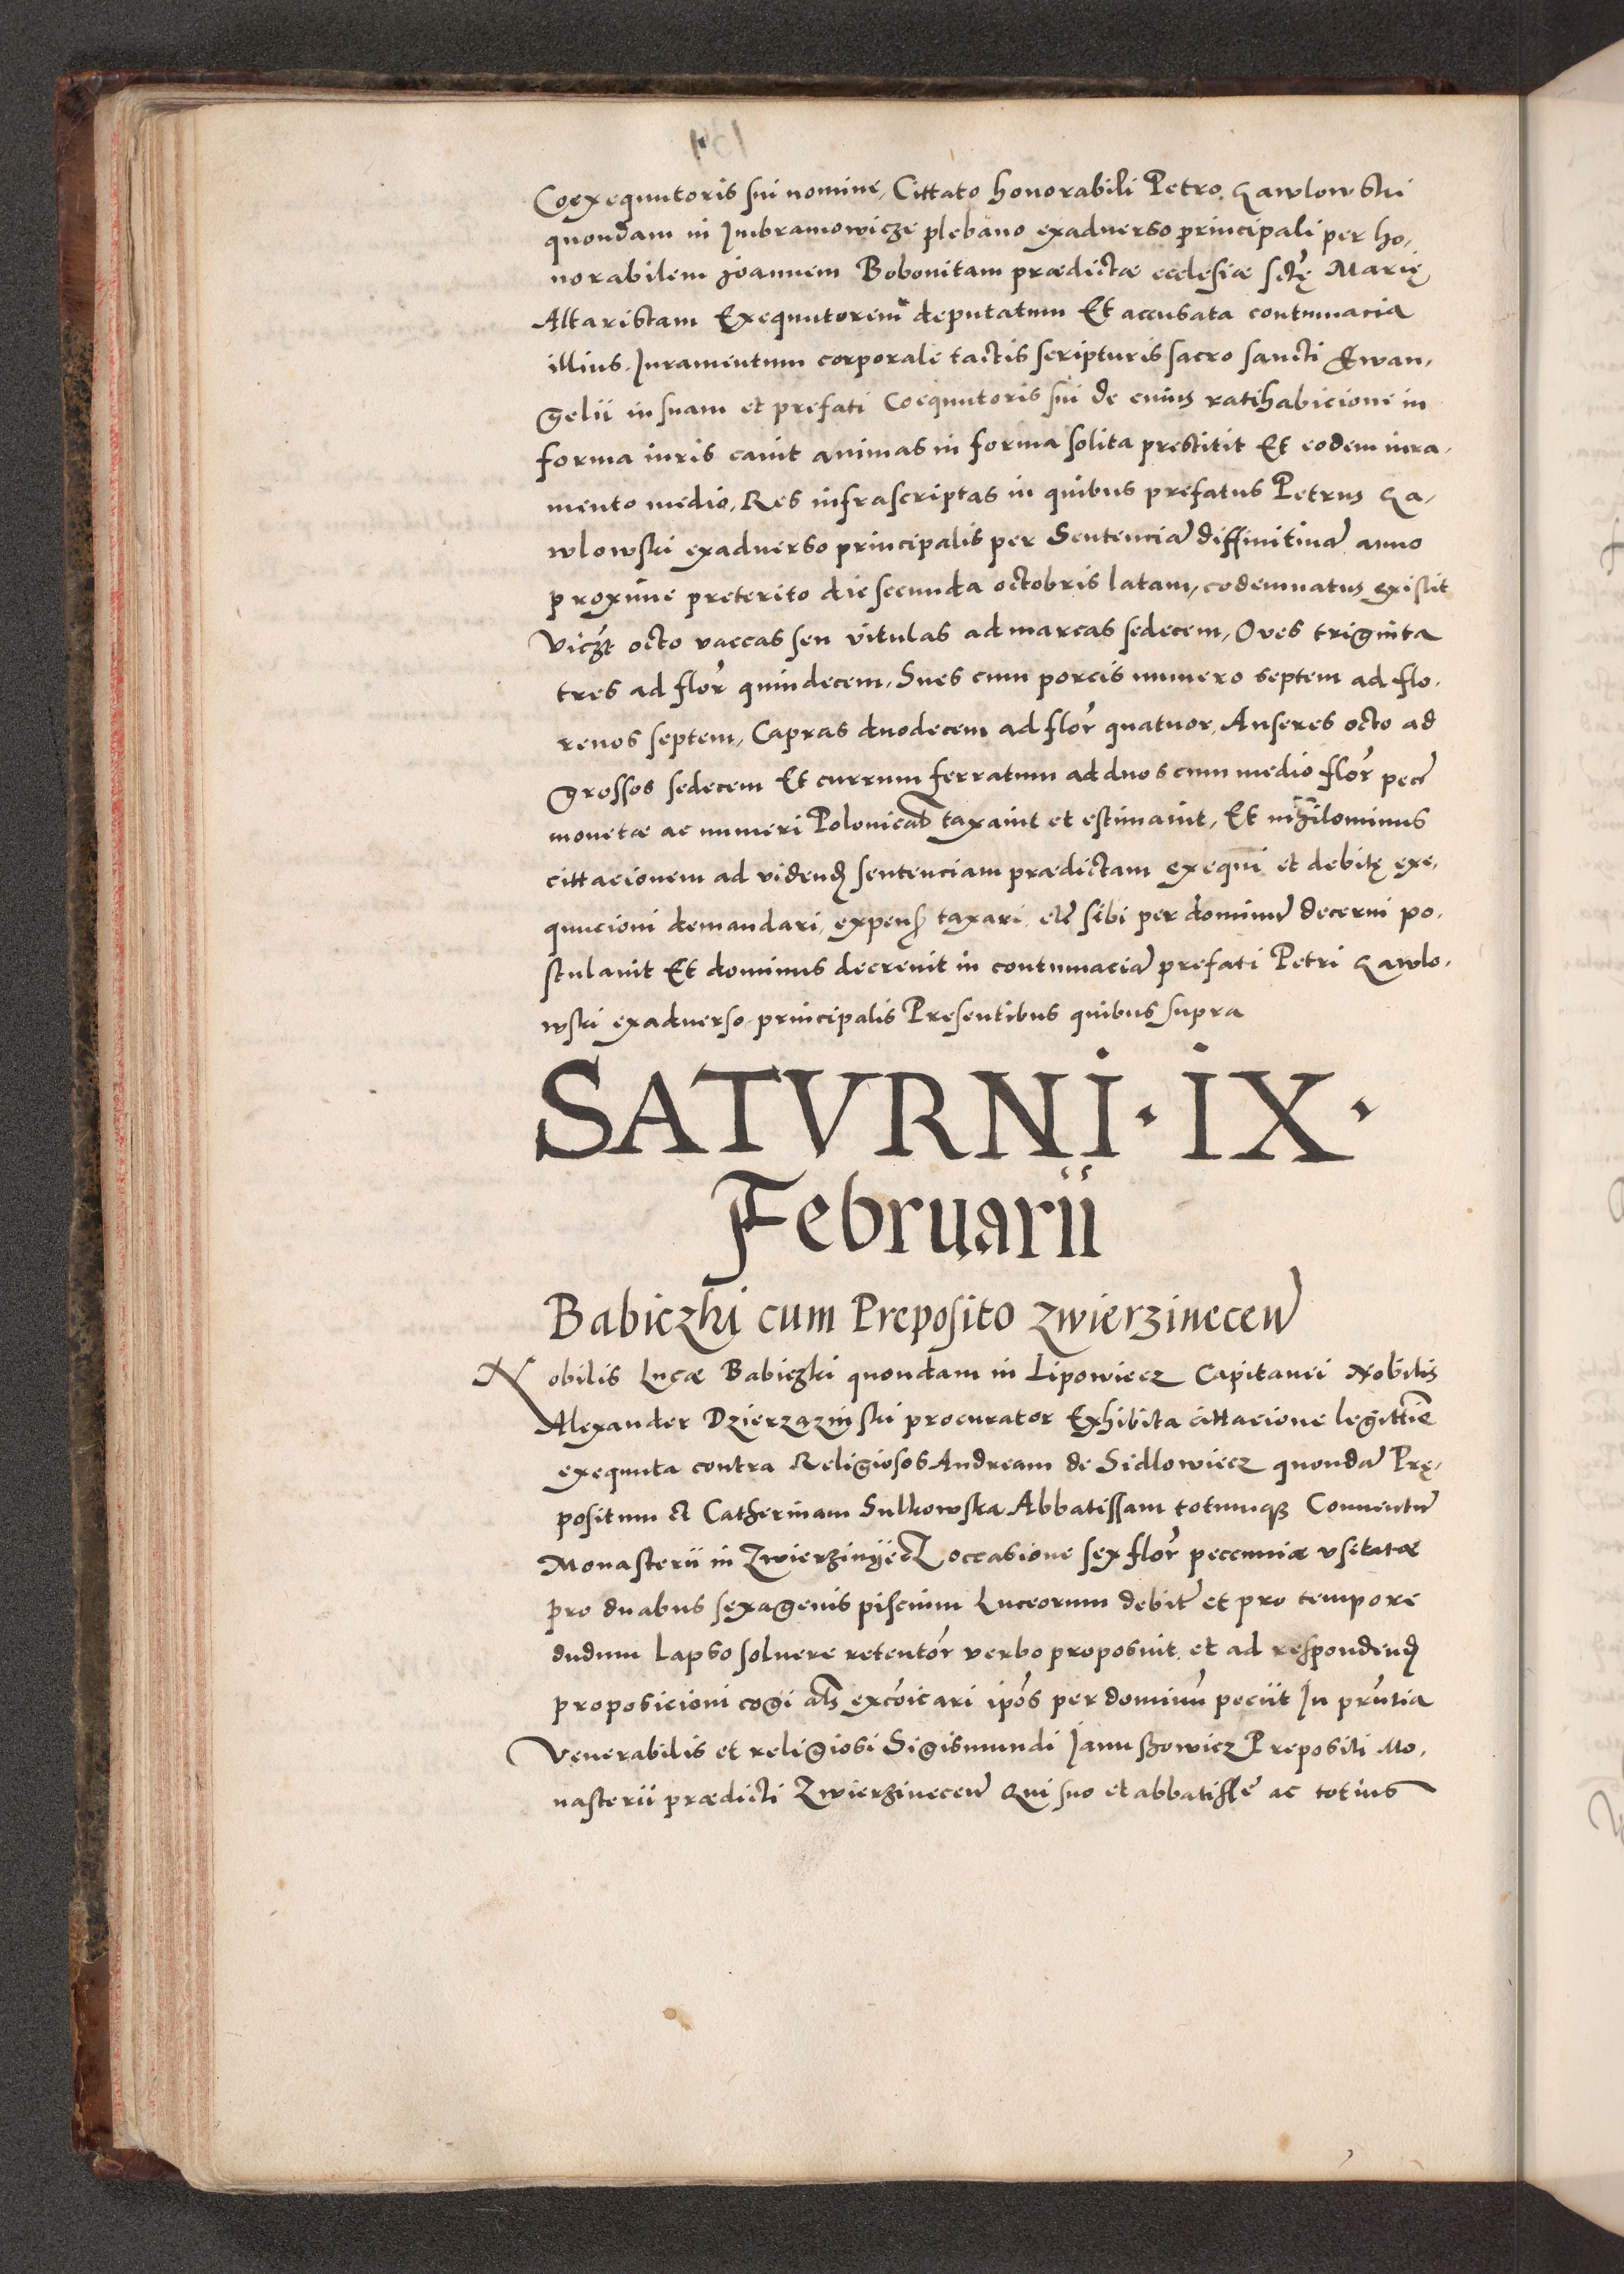 Coexequutoris sui nomine, Cittato honorabili Petro Gawlowski
quondam in Imbramowicze plebano exadverso principali per ho,
norabilem Joannem Bobonitam prædictæ ecclesiæ sctę Marię
Altaristam Exequutorem deputatum Et accusata contumacia
illius. Juramentum corporale tactis scripturis sacro sancti Ewan,
gelii in suam et prefati Coequutoris sui de cuius ratihabicione in
forma iuris cauit animas in forma solita prestitit Et eodem iura,
mento medio, Res infrascriptas in quibus prefatus Petrus Ga,
wlowski exadverso principalis per Sentenciā diffinitiuā anno
proxime preterito die secunda octobris latam, codemnatus existit
viczt octo vaccas seu vitulas ad marcas sedecem, Oves triginta
tres ad flor quindecem, Sues cum porcis numero septem ad flo,
renos septem, Capras duodecem ad flor quatuor, Anseres octo ad
grossos sedecem Et currum ferratum ad duos cum medio flor pecū
monetæ ac numeri Polonical taxauit et estimauit, Et nihilominus
cittacionem ad videnđ sentenciam prædictam exequi et debitę exe,
quucioni demandari, expens taxari, etc sibi per dominū decerni po,
stulauit Et dominus decreuit in contumaciā prefati Petri Gawlo,
wski exaduerso principalis Presentibus quibus supra
SATVRNI · IX ·
Februarii
Babiczki cum Preposito Zwierzinecen
Nobilis Lucæ Babiczki quondam in Lipowiecz Capitanei Nobilis
Alexander Dzierzazinski procurator Exhibita cittacione legittīe
exequuta contra Religiosos Andream de Sidlowiecz quondā Prę,
positum et Catherinam Sulkowska Abbatissam totumq3 Conuentū
Monasterii in Zwierzinyecz occasione sex flor peccuniæ vsitatæ
pro duabus sexagenis piscium Luceorum debit et pro tempore
dudum lapso soluere retentor verbo proposuit, et ad respondenđ
proposicioni cogi als excoicari ipos per dominū peciit In pruтia
Venerabilis et religiosi Sigismundi Janussowicz Prepositi Mo,
nasterii prædicti Zwierzinecen Qui suo et abbatissē ac totius